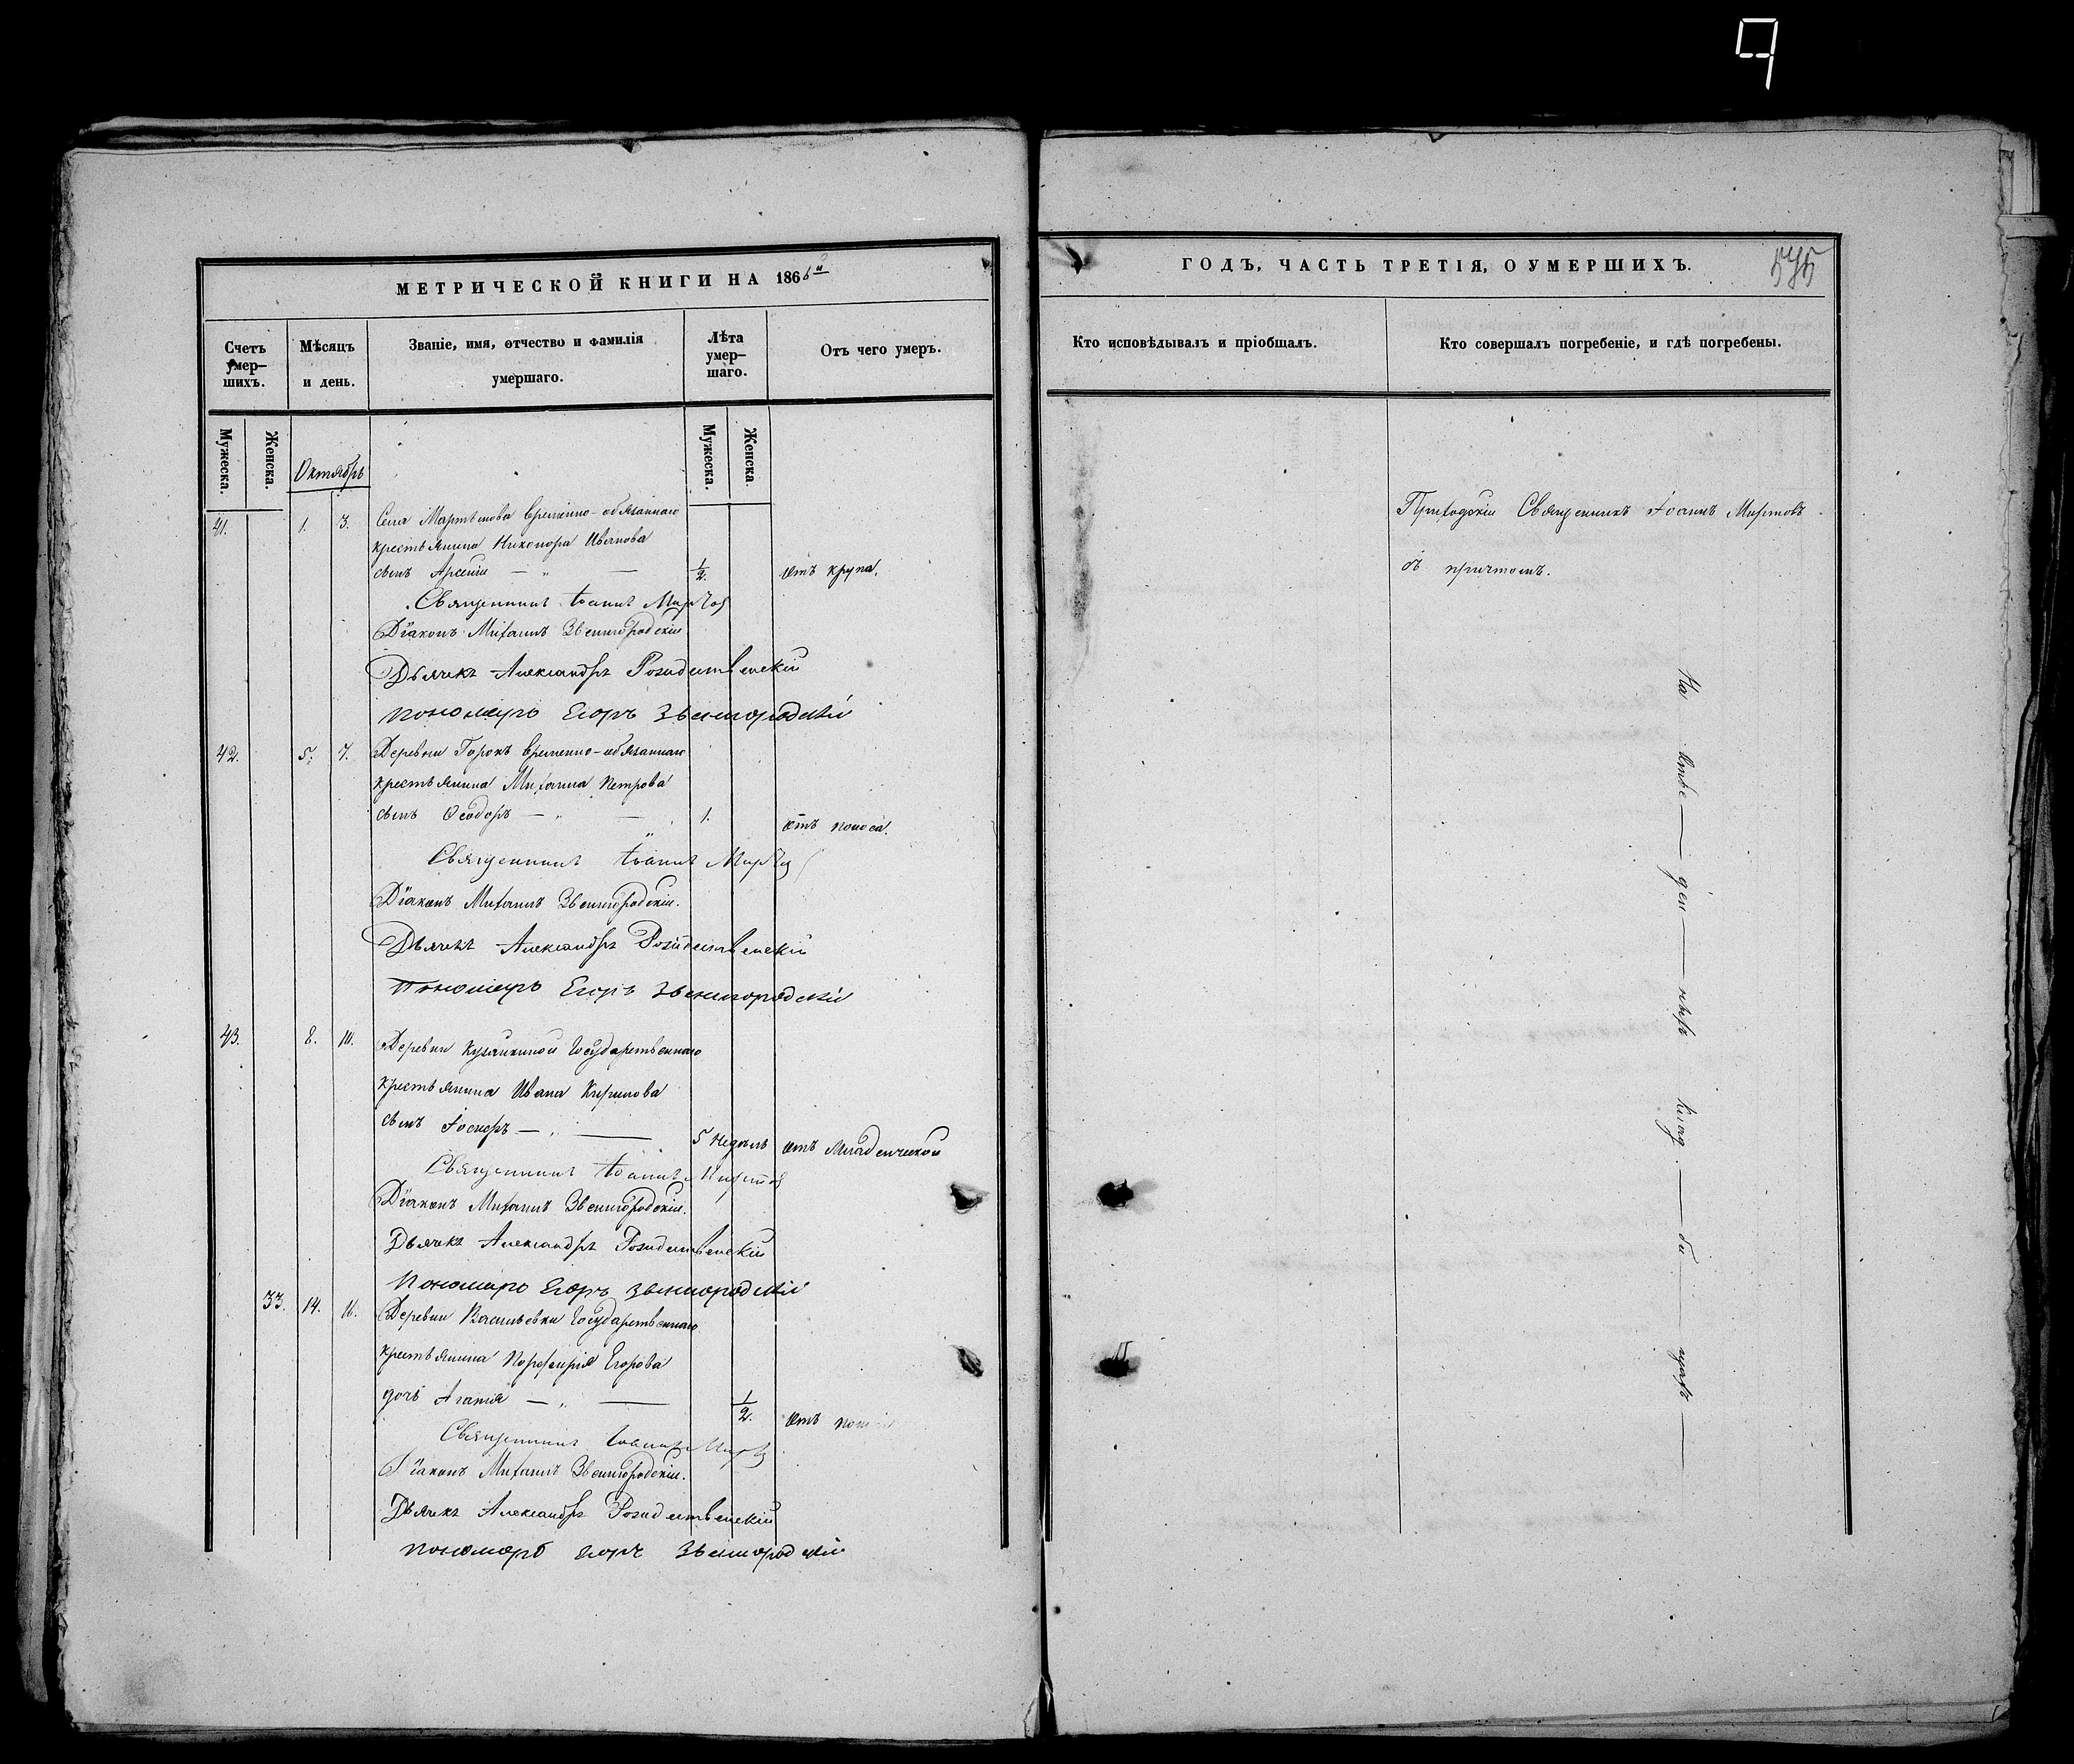 МЕТРИЧЕСКОЙ КНИГИ НА 1866й
Счетъ умер-шихъ.
Мѣсяцъ и день.
Званіе, имя, отчество и фамилія умершаго.
Лѣта умер-шаго.
Отъ чего умеръ.
Мужеска.
Женска.
Мужеска.
Женска.
Октябрь
41. 1. 3. Села Мартынова временно-обязаннаго
крестьянина Никонора Иванова
сынъ Арсеній — „ — 1/2. отъ крупа.
Священникъ Іоаннъ Миртовъ
Діаконъ Михаилъ Звенигородскій
Дьячекъ Александръ Рождественскій
Пономарь Егоръ Звенигородскій
42. 5. 7. Деревни Горокъ временно-обязаннаго
крестьянина Михаила Петрова
сынъ Ѳеодоръ — „ — 1. отъ поноса.
Священникъ Іоаннъ Миртовъ
Діаконъ Михаилъ Звенигородскій.
Дьячекъ Александръ Рождественскій
Пономарь Егоръ Звенигородскій
43. 8. 10. Деревни Государственнаго
крестьянина Ивана Кирилова
сынъ Іосифъ — „ — 5 недѣль отъ младенческой
Священникъ Іоаннъ Миртовъ
Діаконъ Михаилъ Звенигородскій.
Дьячекъ Александръ Рождественскій
Пономарь Егоръ Звенигородскій
33. 14. 16. Деревни Васильевки Государственнаго
крестьянина Порфирія Егорова
дочь Агапія — „ — 1/2. отъ
Священникъ Іоаннъ Миртовъ
Діаконъ Михаилъ Звенигородскій.
Дьячекъ Александръ Рождественскій
Пономарь Егоръ Звенигородскій
ГОДЪ, ЧАСТЬ ТРЕТІЯ, О УМЕРШИХЪ.
Кто исповѣдывалъ и пріобщалъ.
Кто совершалъ погребеніе, и гдѣ погребены.
Приходскій Священникъ Іоаннъ Миртовъ
съ причтомъ.
На отве — ден — номъ клад — би — щѣ —